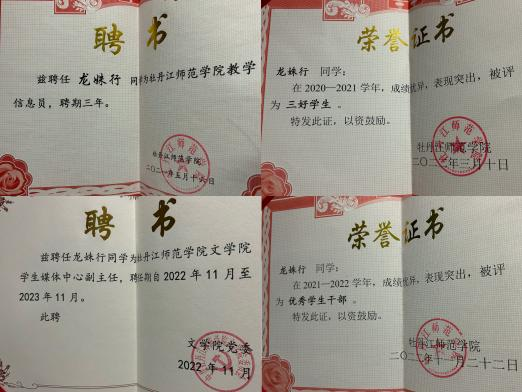 聘 书
兹聘任 龙姝行 同学为牡丹江师范学院教学
信息员，聘期三年。
牡丹江师范学院
荣誉证书
龙姝行 同学：
在 2020—2021 学年，成绩优异，表现突出，被评
为 三好学生 。
特发此证，以资鼓励。
牡丹江师范学院
聘 书
兹聘任龙姝行同学为牡丹江师范学院文学院
学生媒体中心副主任，聘任期自 2022 年 11 月至
2023 年 11 月。
此聘
文学院党委
2022 年 11 月
荣誉证书
龙姝行 同学：
在 2021—2022 学年，成绩优异，表现突出，被评
为 优秀学生干部 。
特发此证，以资鼓励。
牡丹江师范学院